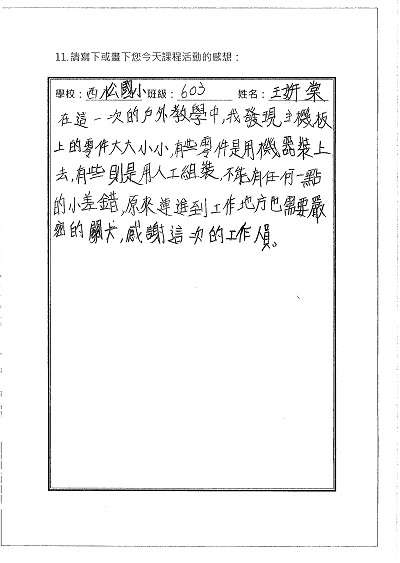 11.請寫下或畫下您今天課程活動的感想：
學校：西松國小班級：603 姓名：王妍棠
在這一次的戶外教學中,我發現主機板
上的零件大大小小,有些零件是用機器裝上
去,有些則是用人工組裝,不能有任何一點
的小差錯,原來連進到工作地方也需要嚴
密的關卡,感謝這次的工作人員。